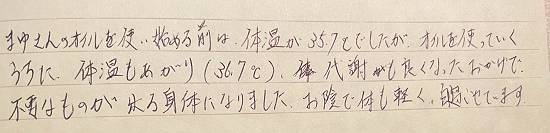 まゆさんのオイルを使い始める前は、体温が35.7℃でしたが、オイルを使っていく
うちに、体温もあがり(36.7℃)、代謝も良くなったおかげで、
不要なものが出る身体になりました。お陰で体も軽く、過ごせています。